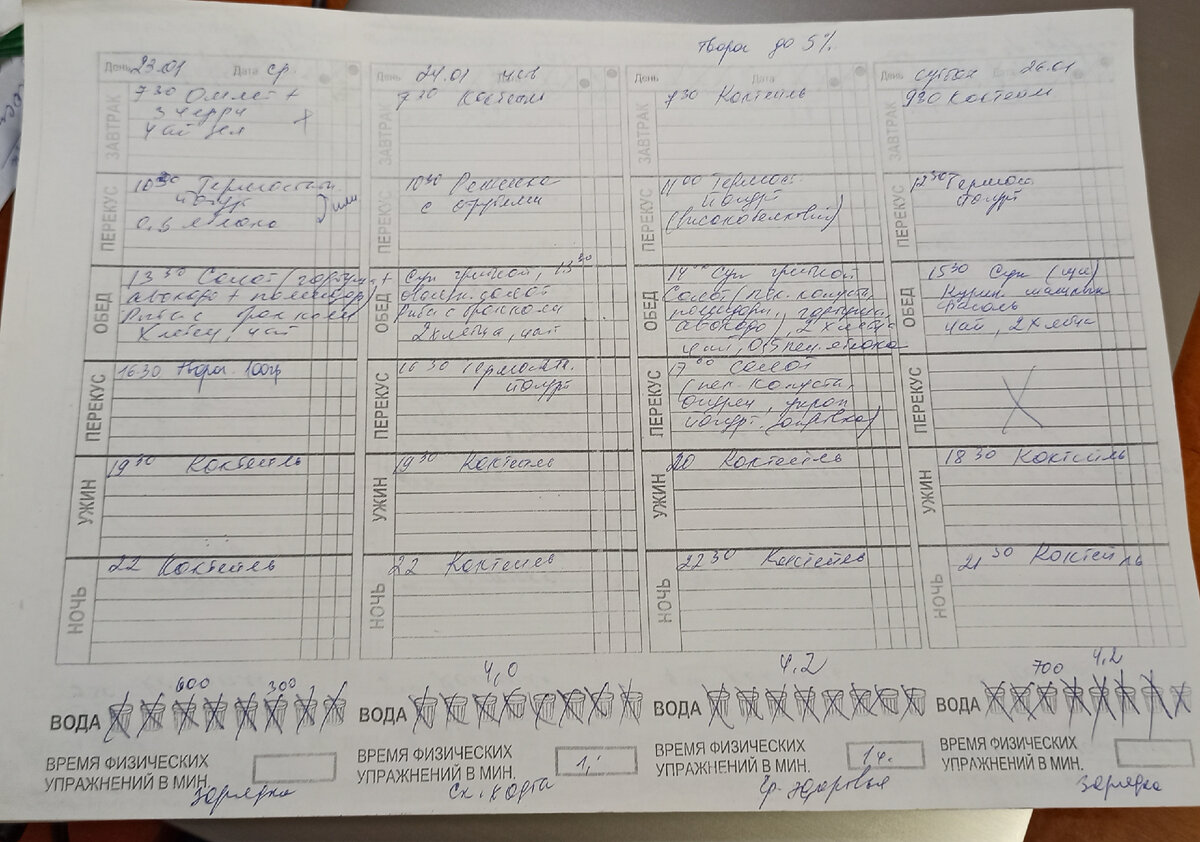 творог до 5%
День 23.01 Дата ср.
ЗАВТРАК
7 30 Омлет +
3 черри
чай зел
ПЕРЕКУС
10 30 Термостатн.
йогурт
0,5 яблоко
ОБЕД
13 30 Салат (
авокадо + помидор)
Рыба с брокколи
хлебец, чай
ПЕРЕКУС
16 30 Творог 100гр
УЖИН
19 30 Коктейль
НОЧЬ
22 Коктейль
600 300
ВОДА
ВРЕМЯ ФИЗИЧЕСКИХ
УПРАЖНЕНИЙ В МИН.
зарядка
День 24.01 Дата
ЗАВТРАК
7 30 Коктейль
ПЕРЕКУС
10 30 Ряженка
с отрубями
ОБЕД
Суп грибной, 13 30
салат
Рыба с брокколи
2 хлебца, чай
ПЕРЕКУС
16 30 Термостатн.
йогурт
УЖИН
19 30 Коктейль
НОЧЬ
22 Коктейль
4,0
ВОДА
ВРЕМЯ ФИЗИЧЕСКИХ
УПРАЖНЕНИЙ В МИН.
Ск. ходьба
День Дата
ЗАВТРАК
7 30 Коктейль
ПЕРЕКУС
11 00 Термост
йогурт
(высокобелковый)
ОБЕД
14 00 Суп грибной
Салат (пек. капуста,
помидоры,
авокадо), 2 хлебца
чай, 0,5 печ. яблока
ПЕРЕКУС
17 00 салат
(пек. капуста,
огурец, укроп
йогурт. заправка)
УЖИН
20 Коктейль
НОЧЬ
22 30 Коктейль
4,2
ВОДА
ВРЕМЯ ФИЗИЧЕСКИХ
УПРАЖНЕНИЙ В МИН.
1 ч.
Гр. здоровья
День суббота 26.01
ЗАВТРАК
9 30 Коктейль
ПЕРЕКУС
12 30 Термост
йогурт
ОБЕД
15 30 Суп (щи)
Курин. шашлык
фасоль
чай, 2 хлебца
ПЕРЕКУС
УЖИН
18 30 Коктейль
НОЧЬ
21 30 Коктейль
700 4,2
ВОДА
ВРЕМЯ ФИЗИЧЕСКИХ
УПРАЖНЕНИЙ В МИН.
зарядка